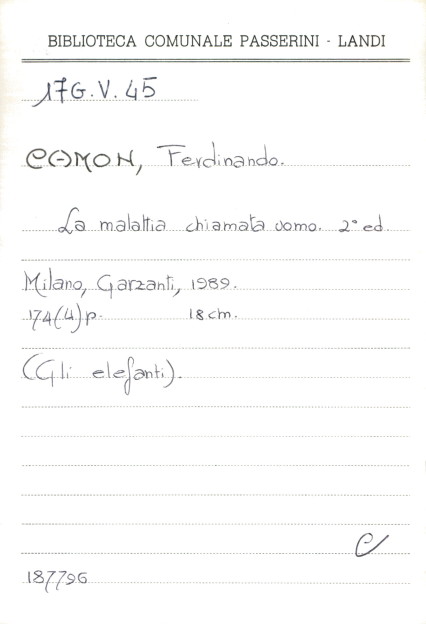 BIBLIOTECA COMUNALE PASSERINI - LANDI
17G.V.45
CAMON, Ferdinando.
La malattia chiamata uomo. 2° ed.
Milano, Garzanti, 1989.
174(4)p. 18cm.
(Gli elefanti).
C
187796